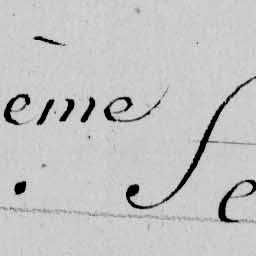 ème
. Se